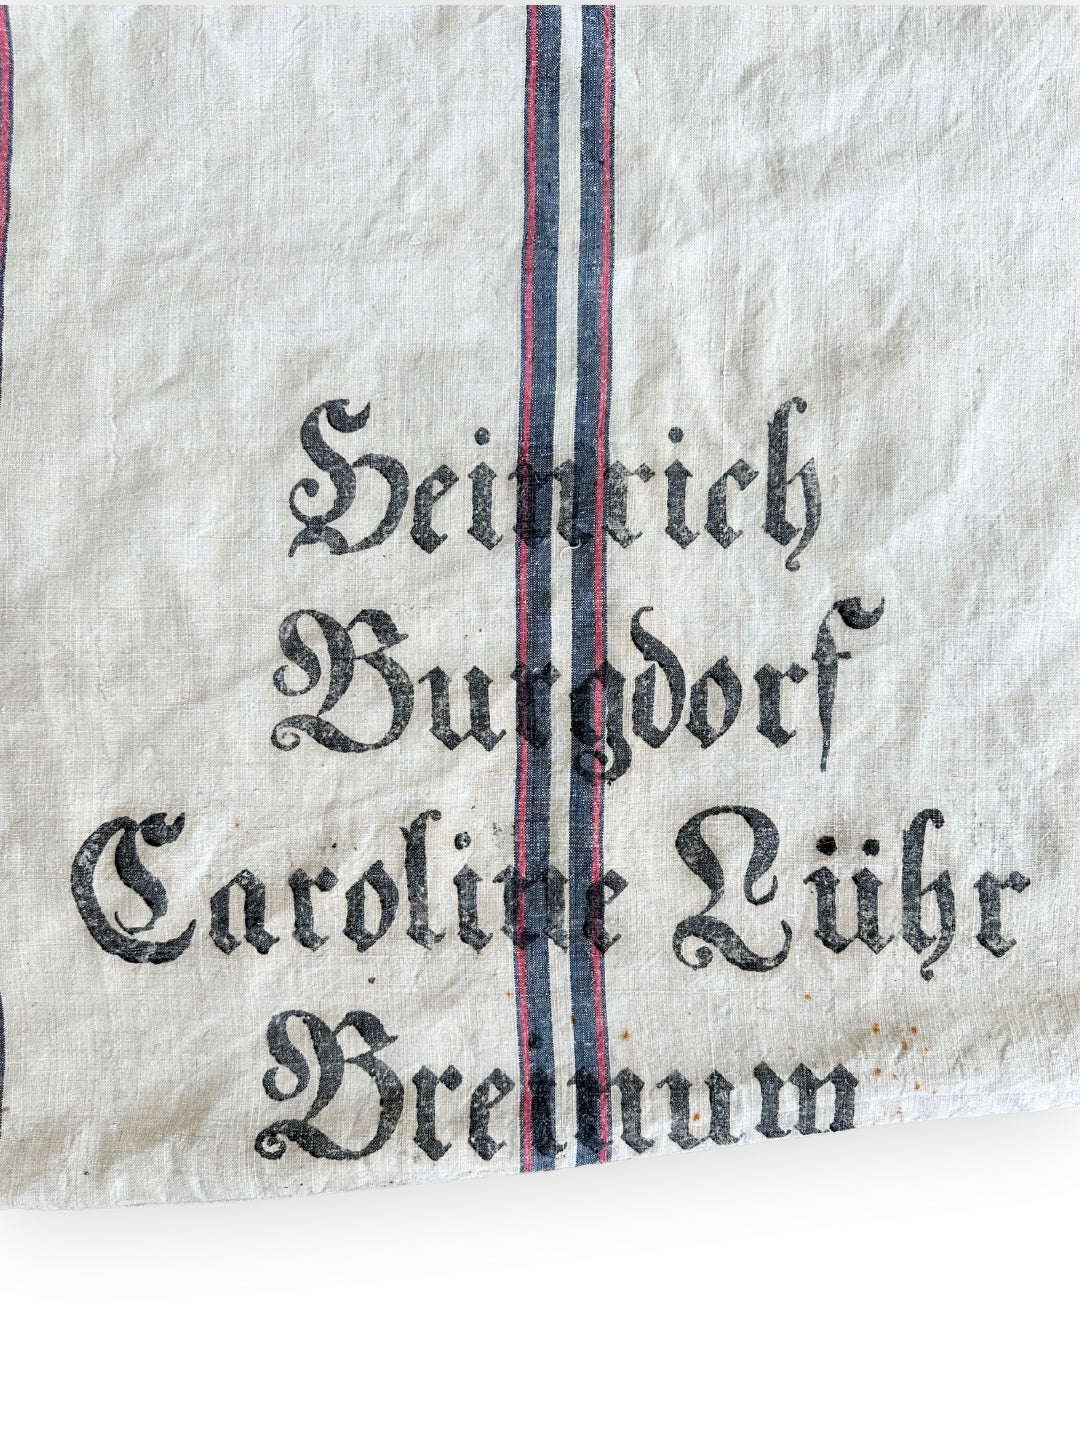 Heinrich
Burgdorf
Caroline Lühr
Breinum